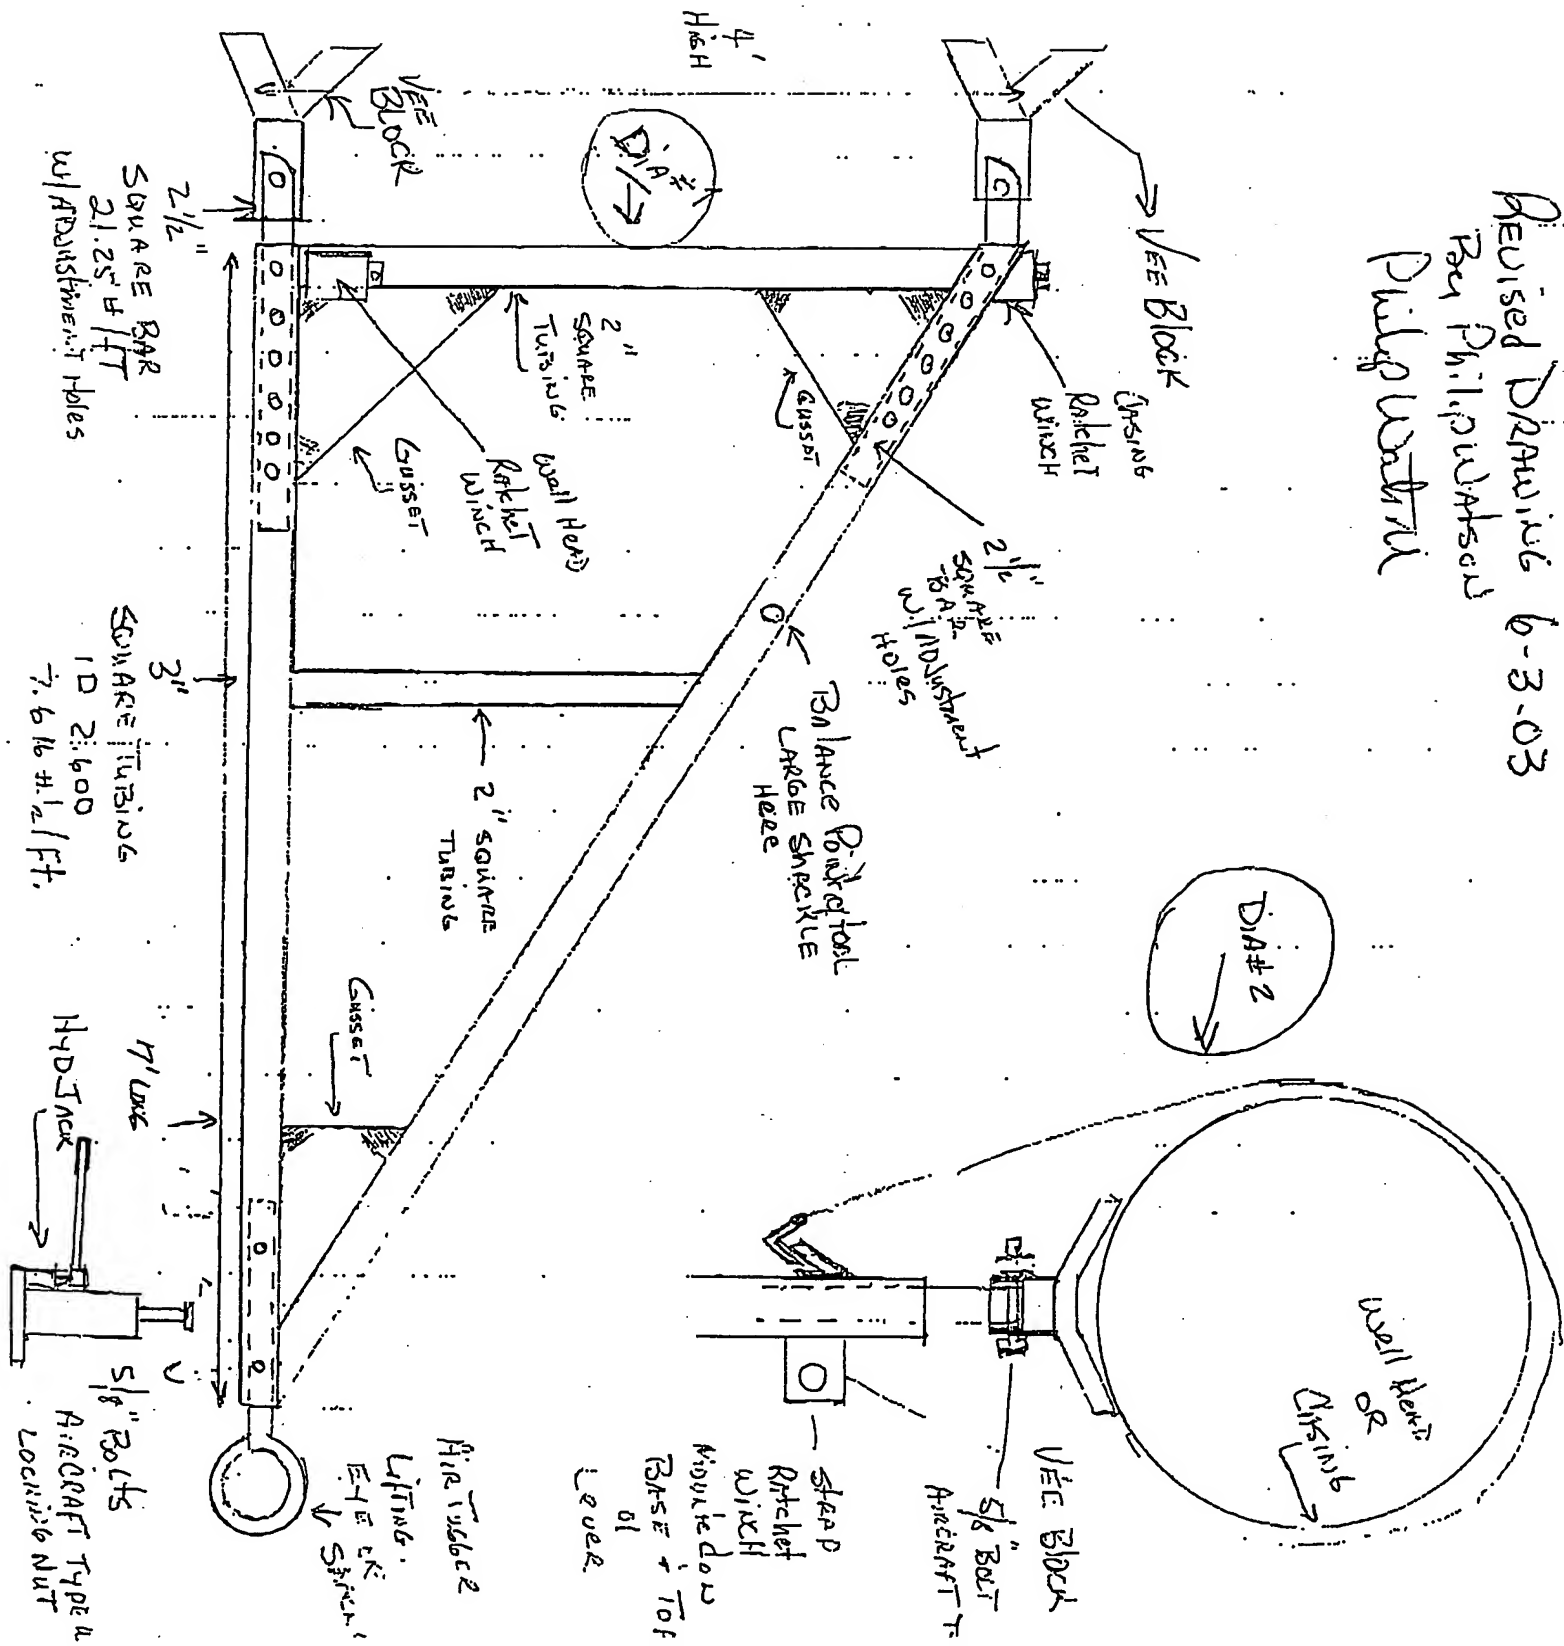 REVISED DRAWING 6-3-03
By Philip Watson
Philip Watson
VEE BLOCK
4'
HIGH
VEE
BLOCK
DIA #
CASING
Ratchet
WINCH
GUSSET
2"
SQUARE
TUBING
2 1/2"
SQUARE BAR
21.25 # / FT
W/ ADJUSTMENT Holes
Well HEAD
Ratchet
WINCH
GUSSET
2 1/2"
SQUARE
BAR
W/ ADJUSTMENT
Holes
BALANCE Point of tool
LARGE SHACKLE
HERE
3"
SQUARE TUBING
ID 2.600
/Ft.
2" SQUARE
TUBING
GUSSET
7' LONG
HYD JACK
5/8" Bolts
AIRCRAFT TYPE
LOCKING NUT
AIR TUGGER
LIFTING
EYE
DIA #2
Well HEAD
OR
CASING
VEE BLOCK
5/8" BOLT
AIRCRAFT T
STRAP
Ratchet
WINCH
Mounted ON
BASE + TOP
of
LEVER